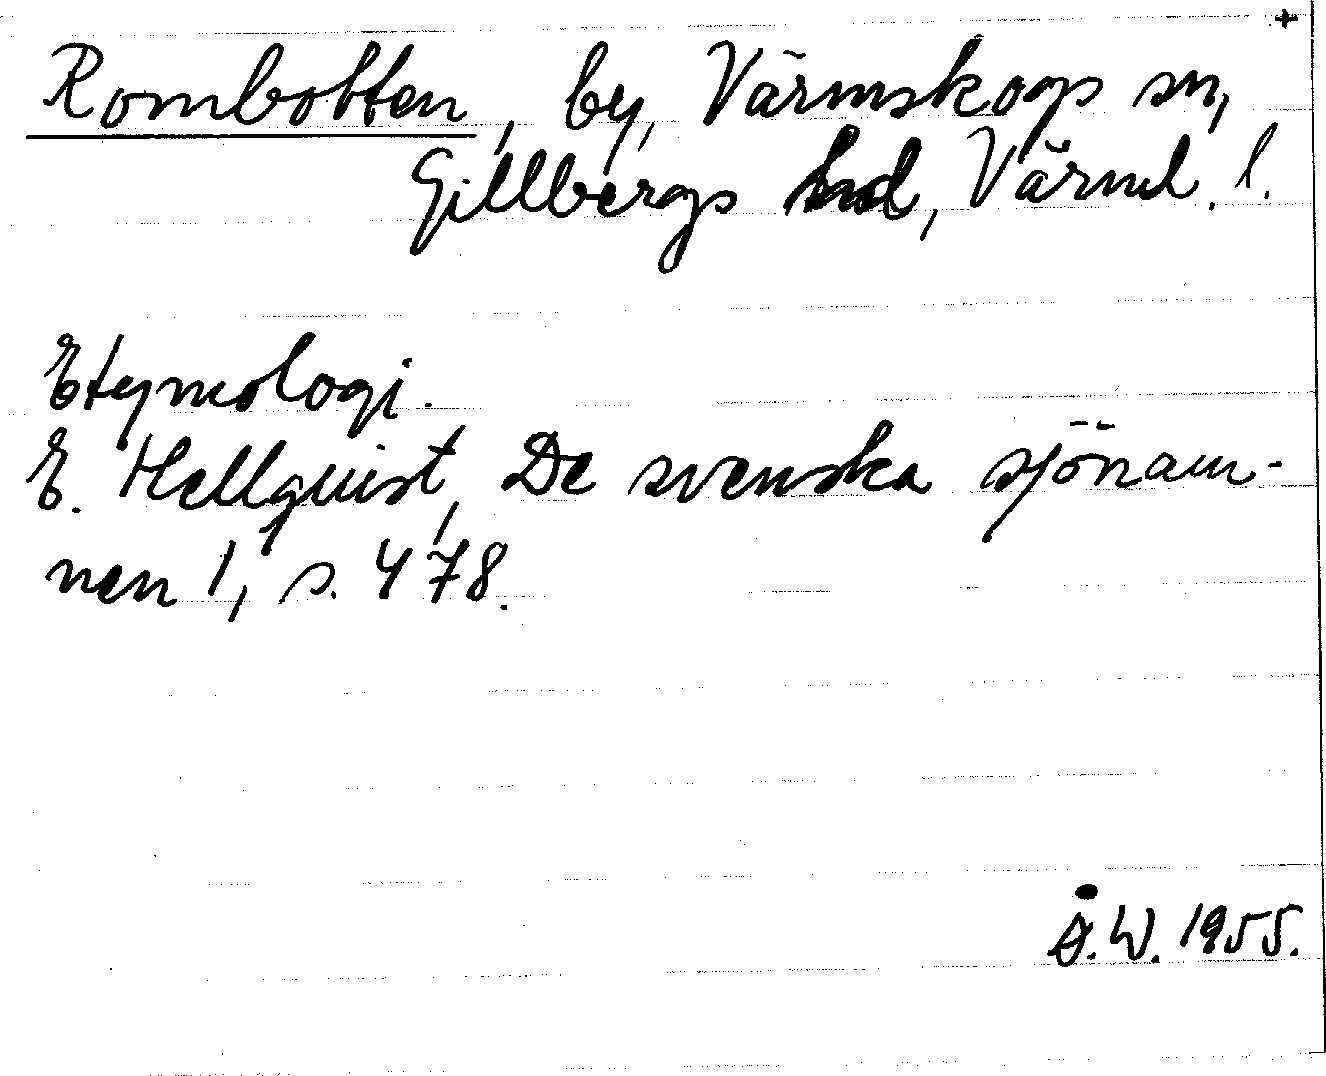 +
Rombotten, by, Värmskogs sn,
Gillbergs hd, Värml. l.
Etymologi.
E. Hellquist, De svenska sjönam-
nen 1, s. 478.
Å.W. 1955.